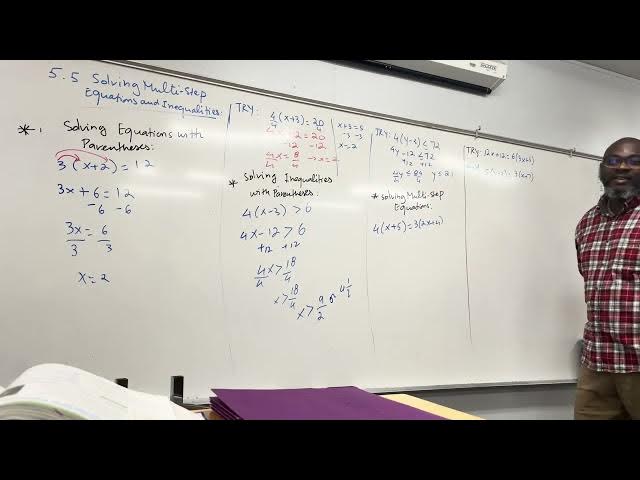 5.5 Solving Multi-Step
Equations and Inequalities:
* 1 Solving Equations with
Parentheses:
3(x+2)=12
3x+6=12
-6 -6
3x = 6
3 3
x=2
TRY:
4(x+3)=20
4 4
x+3=5
-3 -3
x=2
4x+12=20
-12 -12
4x = 8 → x=2
4 4
* Solving Inequalities
with Parentheses:
4(x-3)>6
4x-12>6
+12 +12
4x > 18
4 4
x > 18
4
x > 9 or 4 1
2 2
TRY:
4(y-3) ≤ 72
4y-12 ≤ 72
+12 +12
4y ≤ 84 y ≤ 21
4 4
* Solving Multi-Step
Equations:
4(x+5)=3(2x+4)
TRY: 12x+12=6(3x+1)